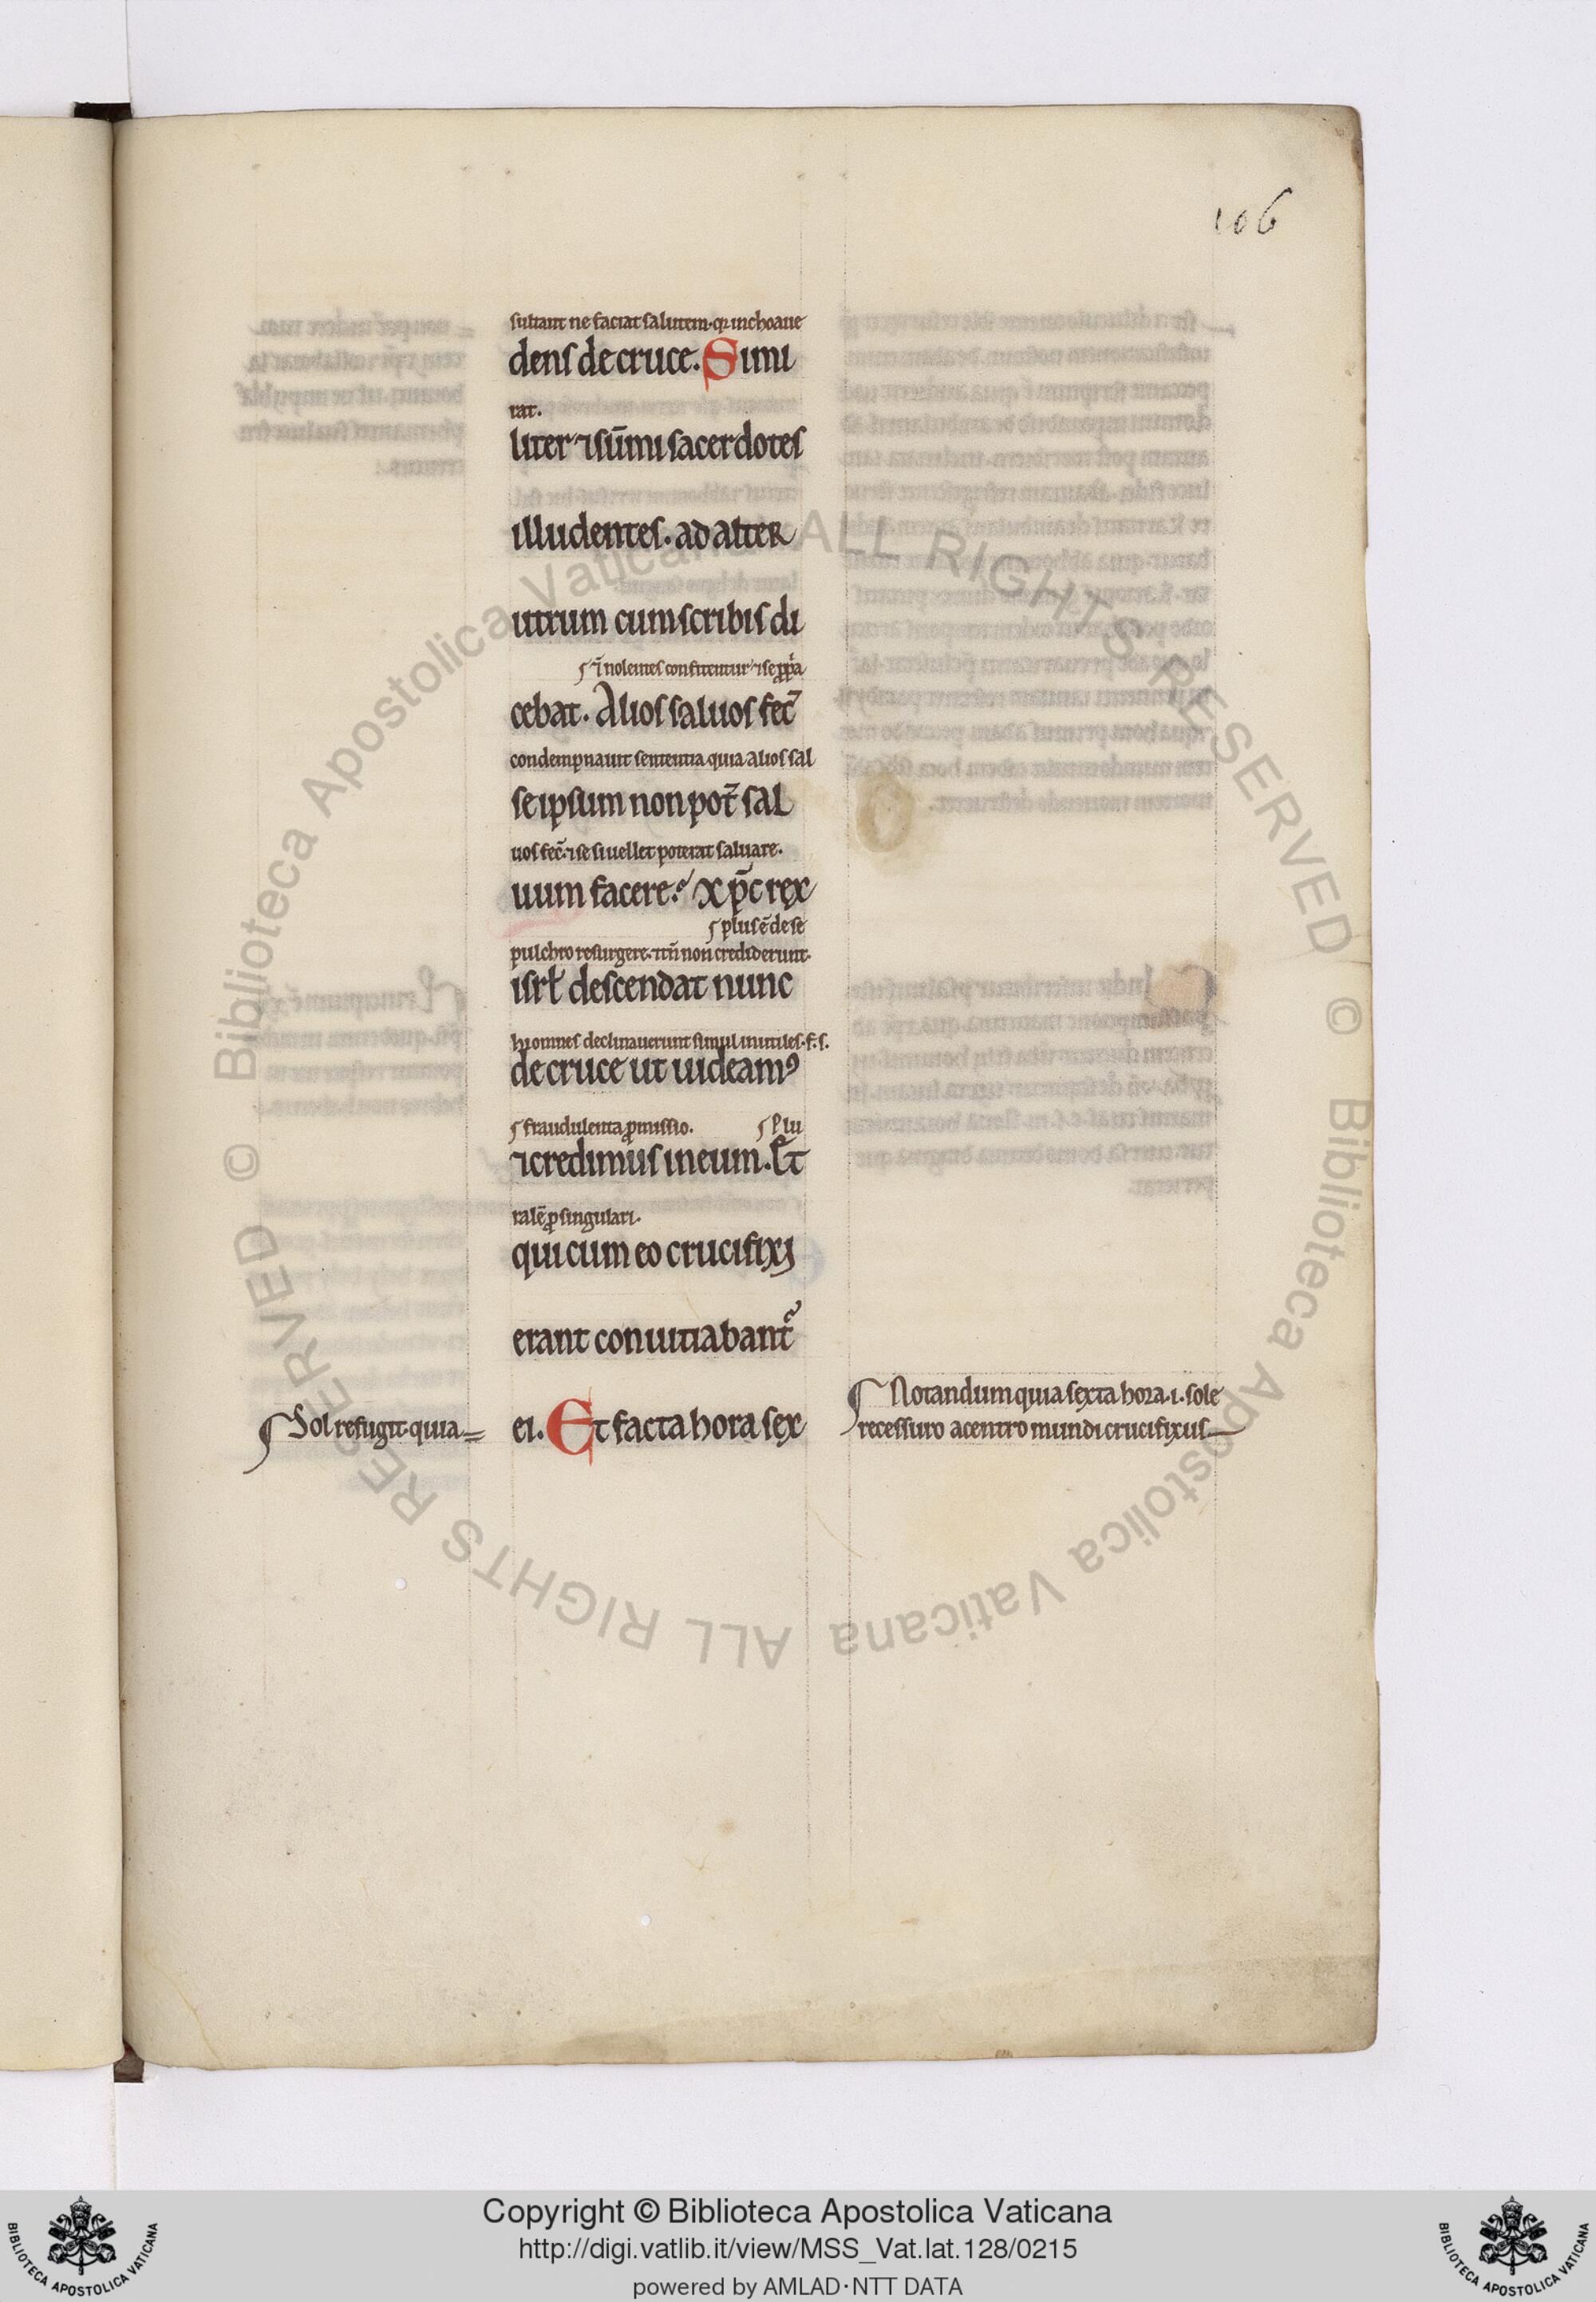 106
sultant ne faciat salutem. qͣ inchoaue
dens de cruce. Simi
rat.
liter ⁊ sūmi sacerdotes
illudentes. ad alter
utrum cum scribis di
nolentes confitentur ⁊ se
cebat. Alios saluos fec̄
condempnauit sententia quia alios sal
se ipsum non pot̄ sal
uos fec̄. ⁊ se si uellet poterat saluare.
uum facere. xp̄c rex
plus ē de se
pulchro resurgere. ⁊ tn̄ non crediderunt.
isrl̄ descendat nunc
hi omnes declinauerunt simul inutiles. f. s.
de cruce ut uideamꝰ
fraudulenta ꝓmissio. Plu
⁊ credimus in eum. Et
rale ꝓ singulari.
qui cum eo crucifixi
erant conuitiabant᷑
Sol refugit. quia
ei. Et facta hora sex
Notandum quia sexta hora .i. sole
recessuro a centro mundi crucifixus
© Biblioteca Apostolica Vaticana ALL RIGHTS RESERVED
© Biblioteca Apostolica Vaticana ALL RIGHTS RESERVED
Copyright © Biblioteca Apostolica Vaticana
http://digi.vatlib.it/view/MSS_Vat.lat.128/0215
powered by AMLAD·NTT DATA
BIBLIOTECA APOSTOLICA VATICANA
BIBLIOTECA APOSTOLICA VATICANA